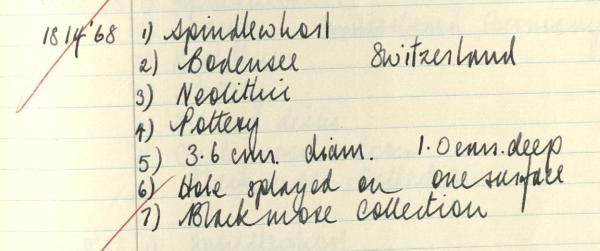 1814'68 1) Spindlewhorl
2) Bodensee Switzerland
3) Neolithic
4) Pottery
5) 3.6 cms. diam. 1.0 cms. deep
6) Hole splayed on one surface
7) Blackmore collection